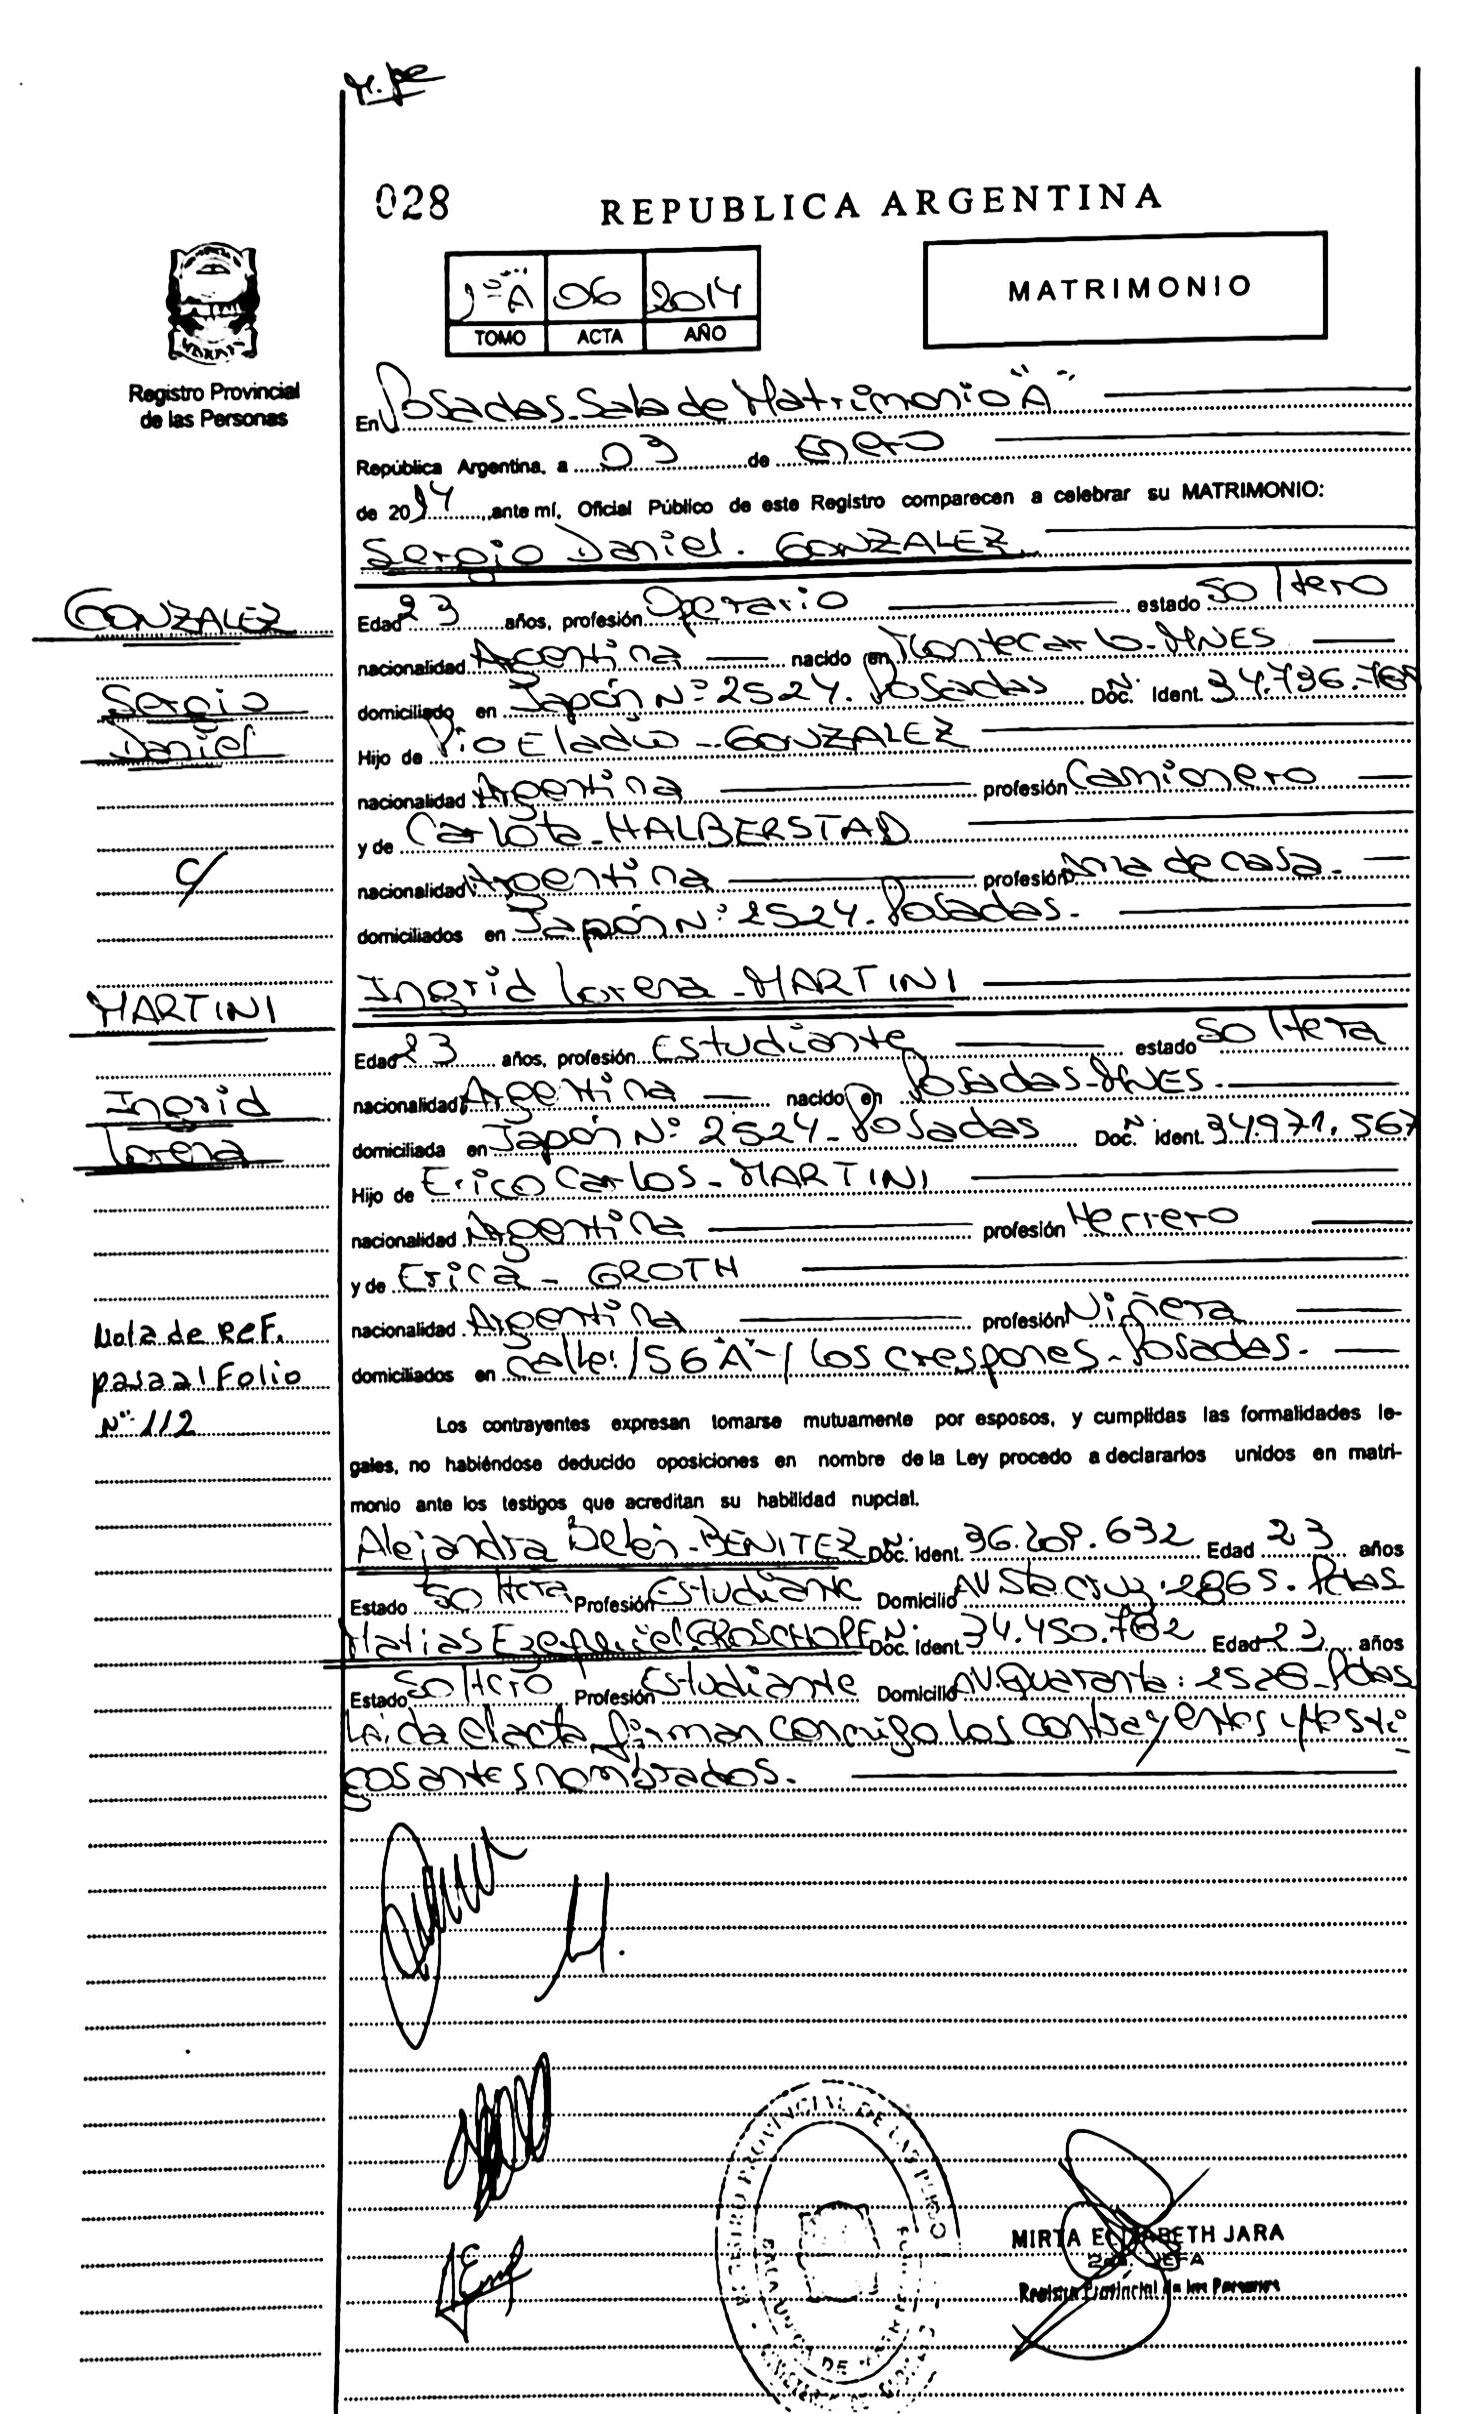 028
REPUBLICA ARGENTINA
1º "A" 06 2014
TOMO ACTA AÑO
MATRIMONIO
Registro Provincial
de las Personas
En Posadas-Sala de Matrimonio "A"
República Argentina, a 03 de Enero
de 2014 ante mí, Oficial Público de este Registro comparecen a celebrar su MATRIMONIO:
Sergio Daniel. GONZALEZ
Edad 23 años, profesión Operario estado Soltero
nacionalidad Argentina nacido en Montecarlo-MNES
domiciliado en Japón Nº 2524. Posadas Doc. N. Ident. 34.736.768
Hijo de Pio Eladio - GONZALEZ
nacionalidad Argentina profesión Camionero
y de Carlota-HALBERSTAD
nacionalidad Argentina profesión Ama de casa.
domiciliados en Japón Nº 2524. Posadas.
Ingrid Lorena - MARTINI
Edad 23 años, profesión Estudiante estado Soltera
nacionalidad Argentina nacido en Posadas-MNES
domiciliada en Japón Nº 2524 - Posadas Doc. N. Ident. 34.971.567
Hijo de Erico Carlos - MARTINI
nacionalidad Argentina profesión Herrero
y de Erica - GROTH
nacionalidad Argentina profesión Niñera
domiciliados en Calle: 156 "A" / Los crespones - Posadas.
Los contrayentes expresan tomarse mutuamente por esposos, y cumplidas las formalidades le-
gales, no habiéndose deducido oposiciones en nombre de la Ley procedo a declararlos unidos en matri-
monio ante los testigos que acreditan su habilidad nupcial.
Alejandra Belen - BENITEZ Doc. N. Ident. 36.409.632 Edad 23 años
Estado Soltera Profesión Estudiante Domicilio AV. Sta. Cruz: 2865. Pdas
Matias Ezequiel. GROSCHOPF Doc. N. Ident. 34.450.782 Edad 23 años
Estado Soltero Profesión Estudiante Domicilio AV. Quaranta: 2528 - Pdas
Leida el acta firman conmigo los contrayentes y testi
gos antes nombrados.
GONZALEZ
Sergio
Daniel
c/
MARTINI
Ingrid
Lorena
Nota de REF.
pasa al Folio
Nº 112
MIRTA ELIZABETH JARA
2da. JEFA
Registro Provincial de las Personas
REGISTRO PROVINCIAL DE LAS PERSO